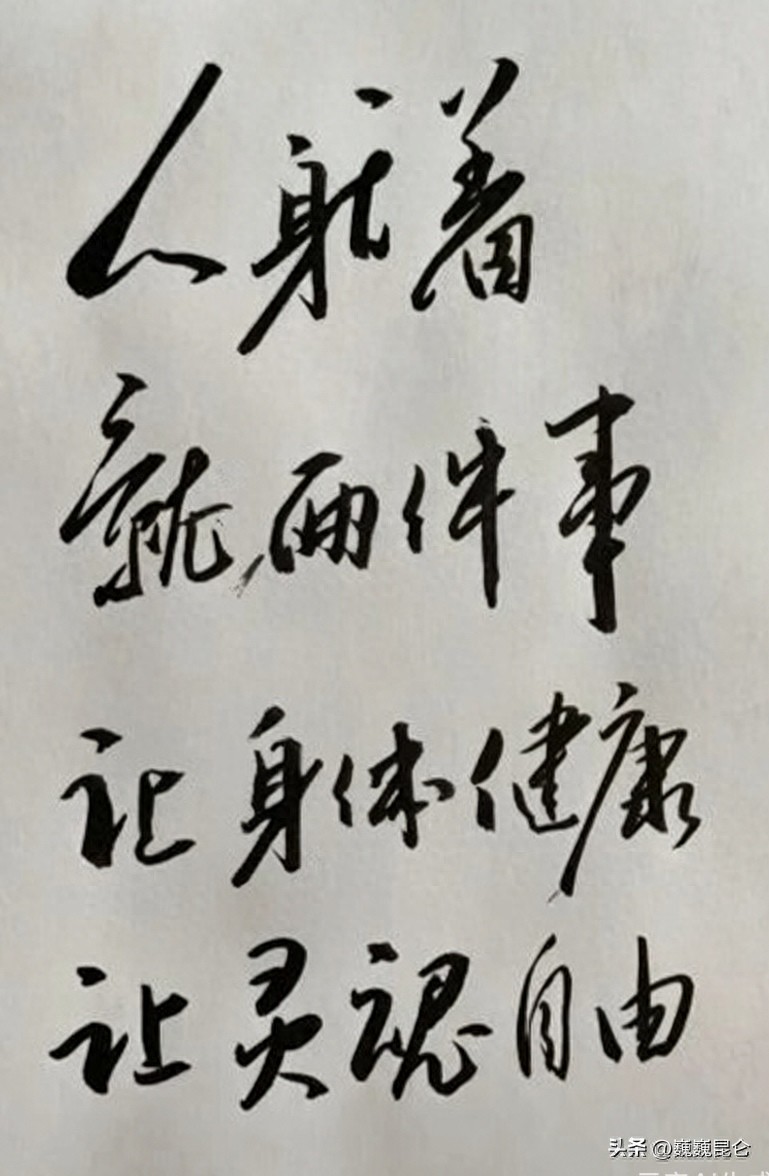 人着
就两件事
让身体健康
让灵魂自由
头条 @巍巍昆仑